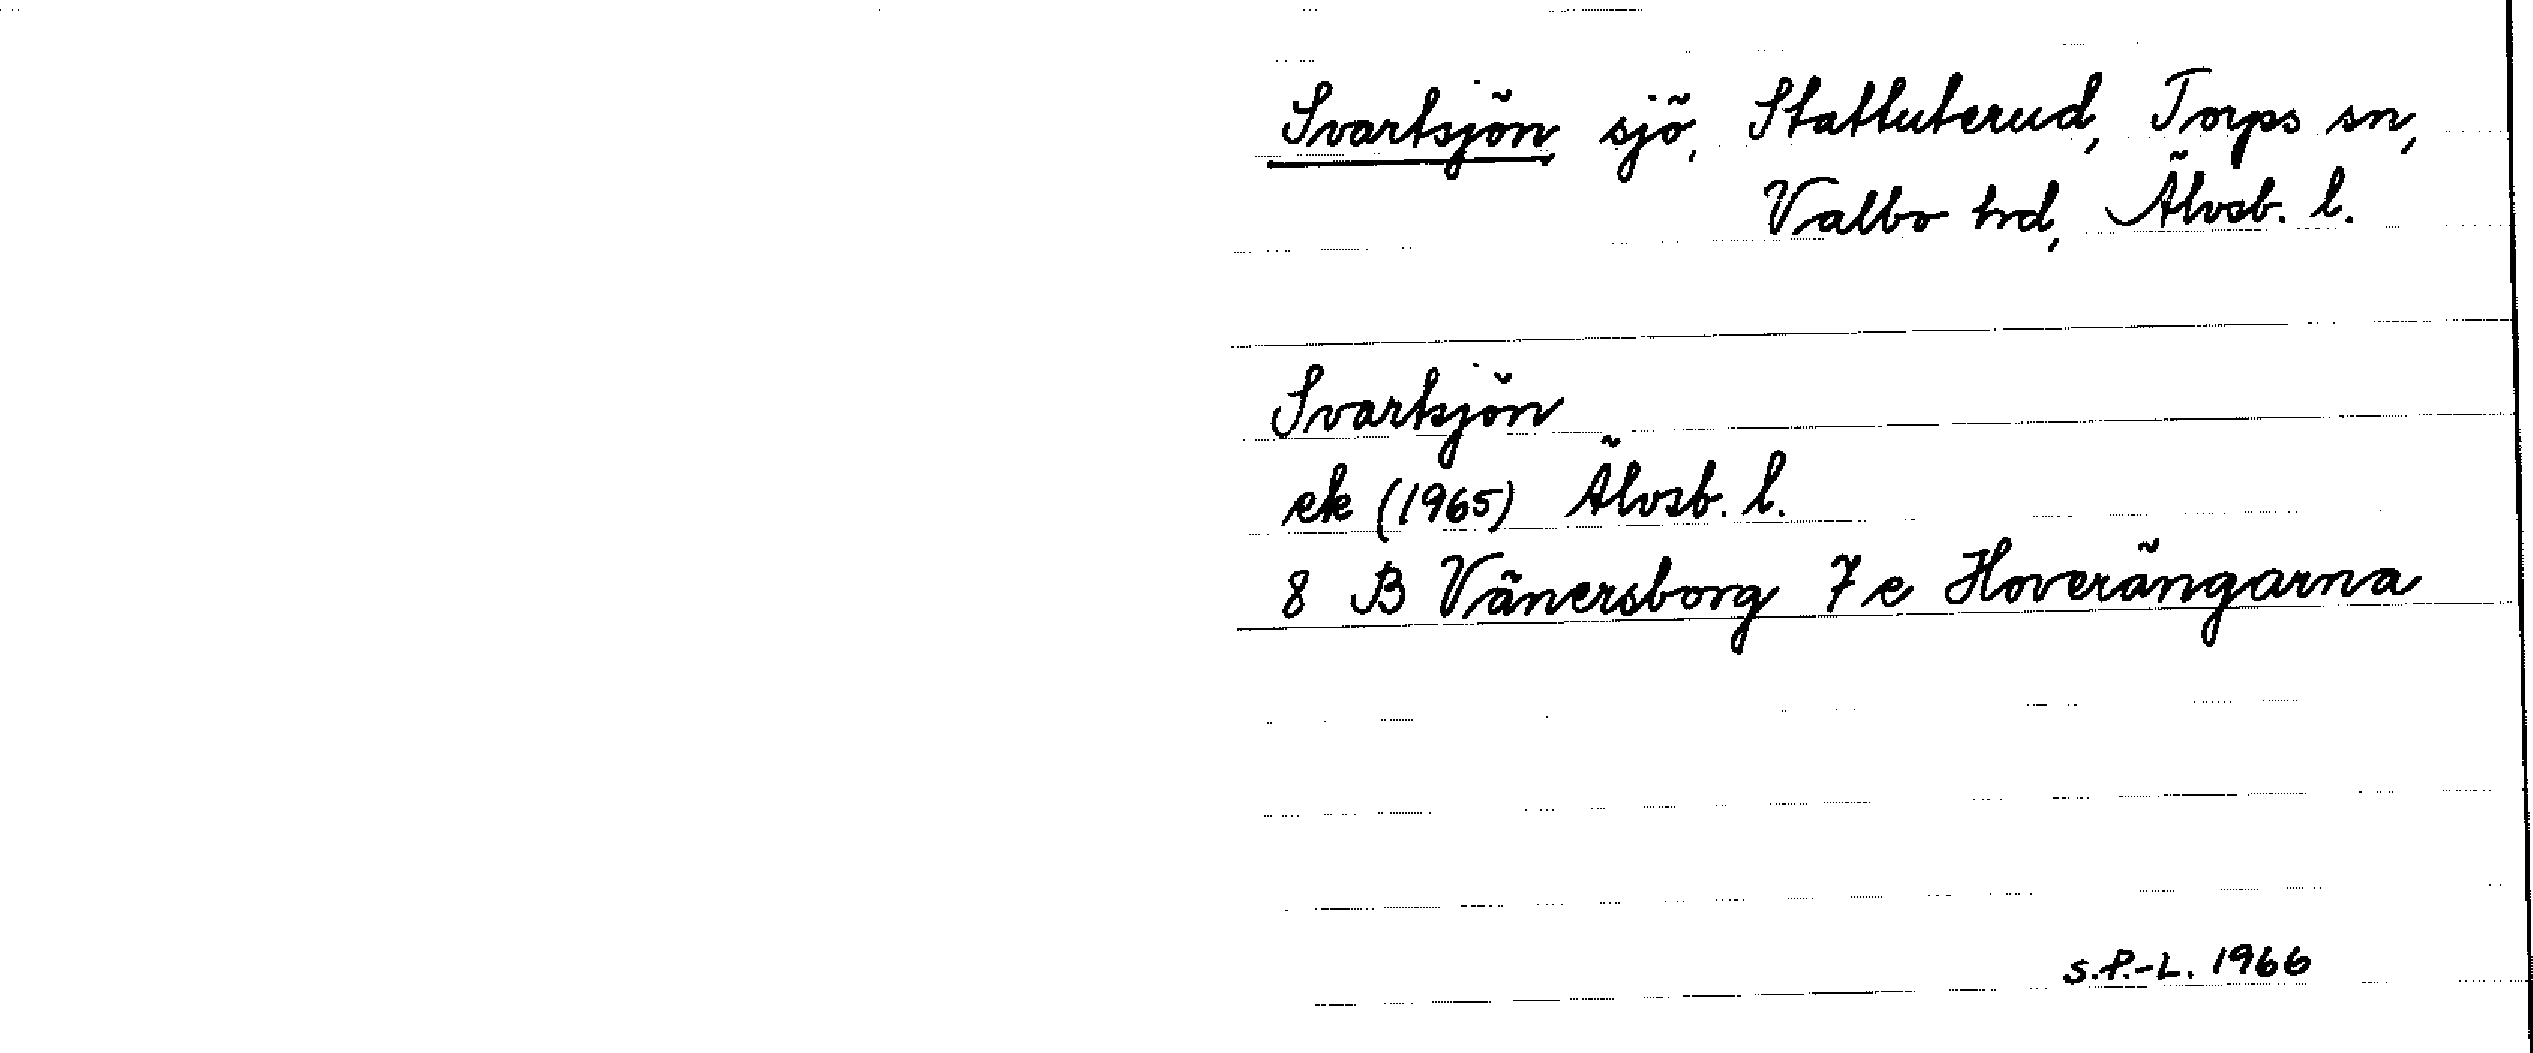 Svartsjön sjö, Statluterud, Torps sn,
Valbo hd, Älvsb. l.
Svartsjön
ek (1965) Älvsb. l.
8 B Vänersborg 7 e Hoverängarna
S.P.-L. 1966